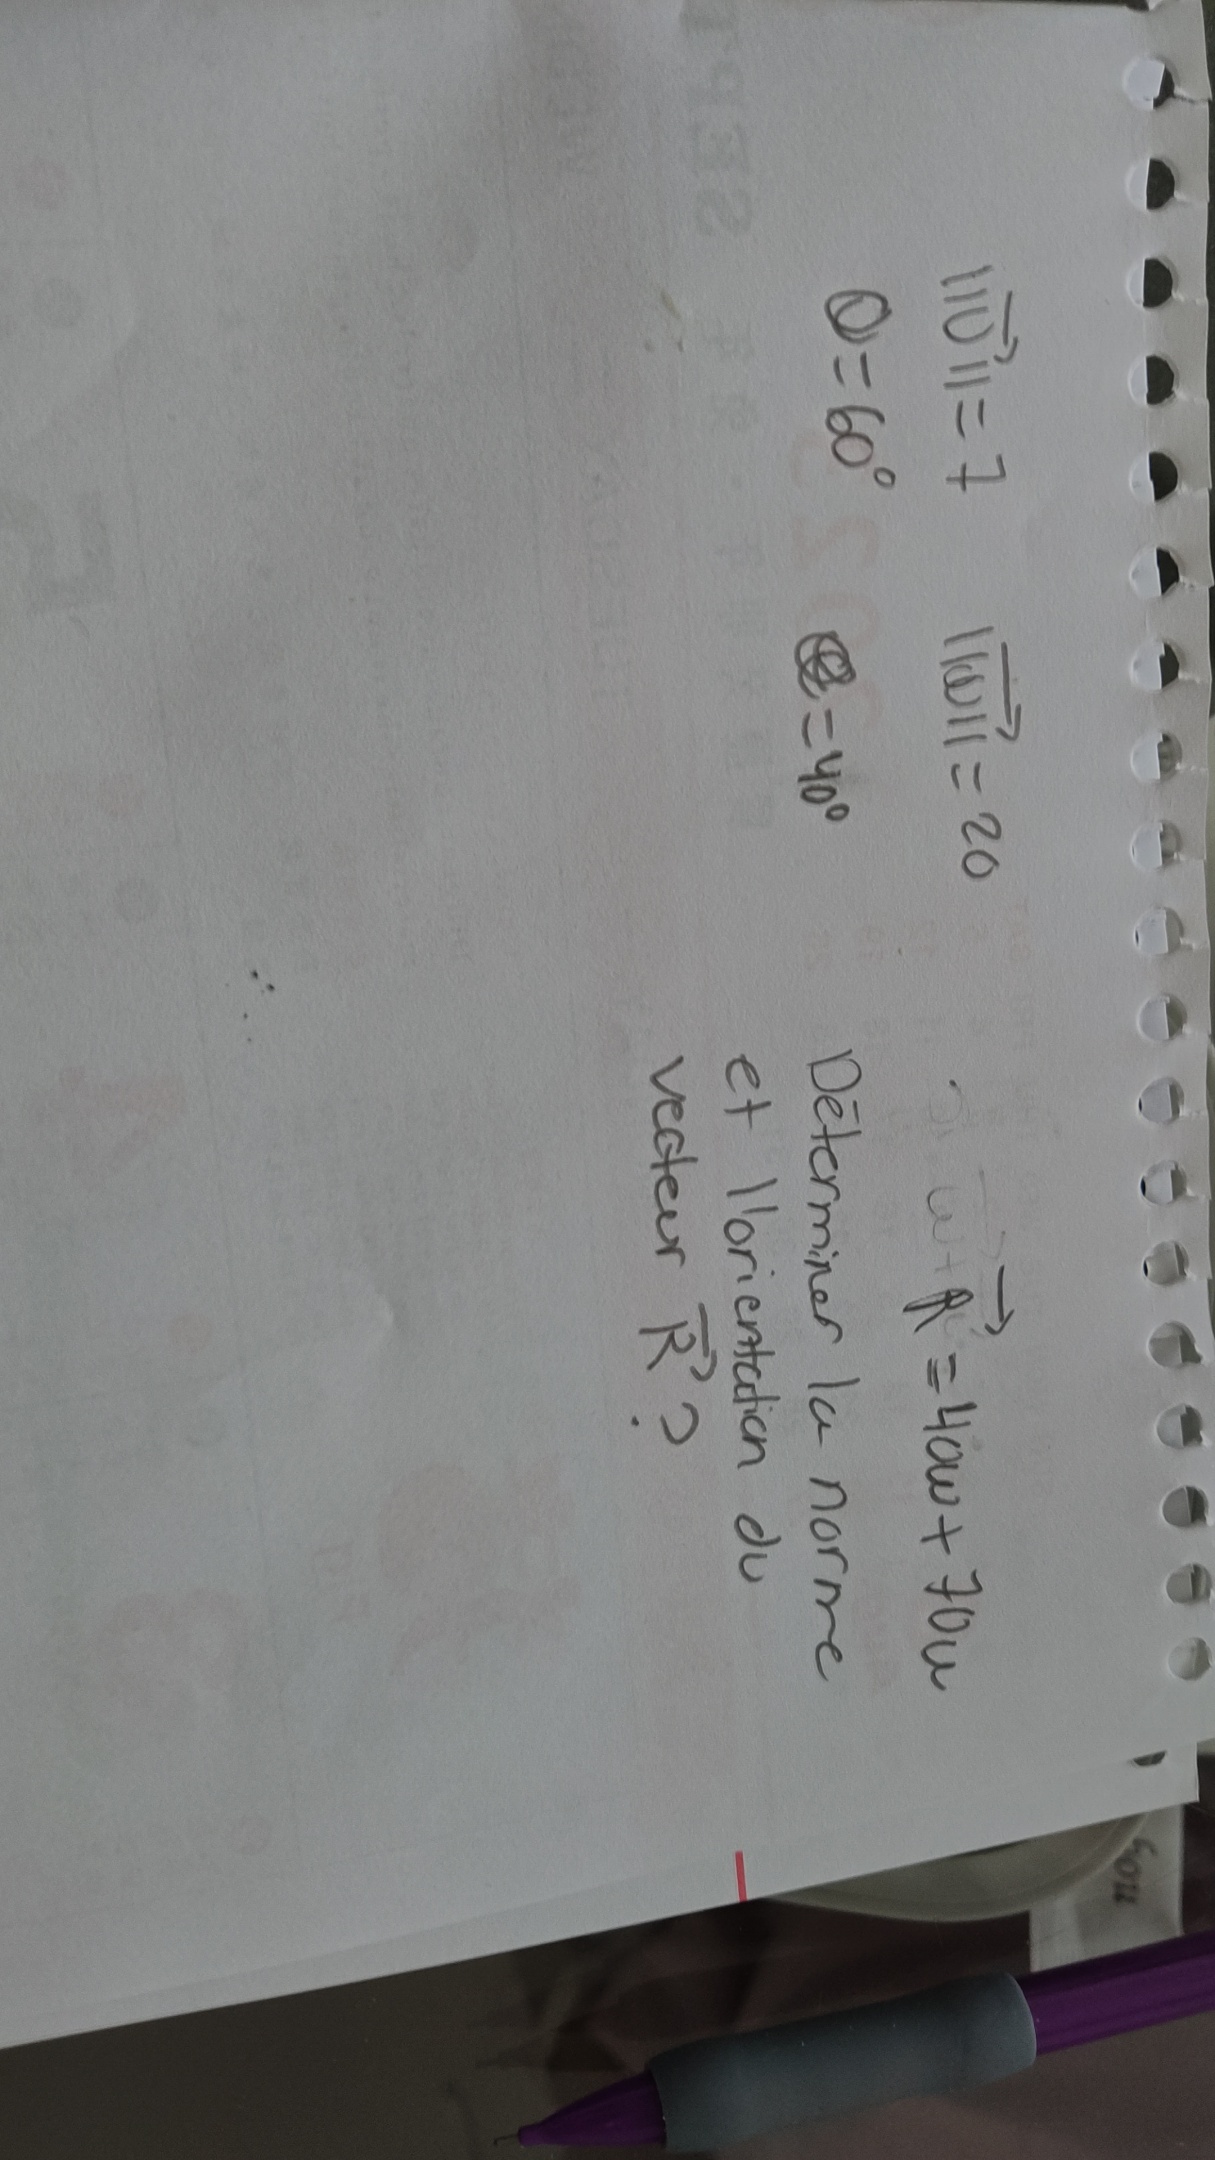 ||U⃗|| = 7 ||w⃗|| = 20 R⃗ = 40w + 70u
θ = 60° θ = 40° Déterminer la norme
et l'orientation du
vecteur R⃗ ?